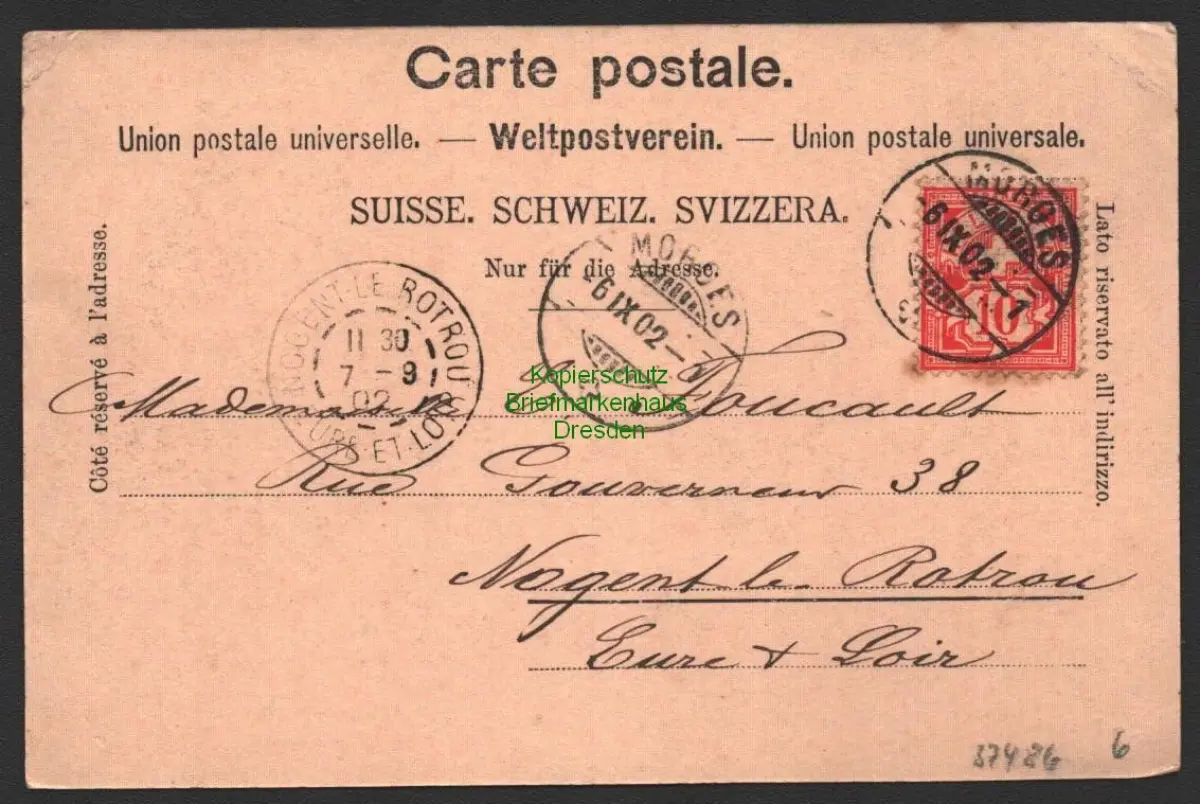 Carte postale.
Union postale universelle. — Weltpostverein. — Union postale universale.
SUISSE. SCHWEIZ. SVIZZERA.
Nur für die Adresse.
Côté réservé à l'adresse.
Lato riservato all' indirizzo.
MORGES
6 IX 02 – 7
10
MORGES
-6 IX 02 – 7
NOGENT-LE ROTROU
11 30
7 - 9
02
EURE-ET-LOIR
Kopierschutz
Briefmarkenhaus
Dresden
Mademoiselle Foucault
Rue Gouverneur 38
Nogent le Rotrou
Eure & Loir
37486 6